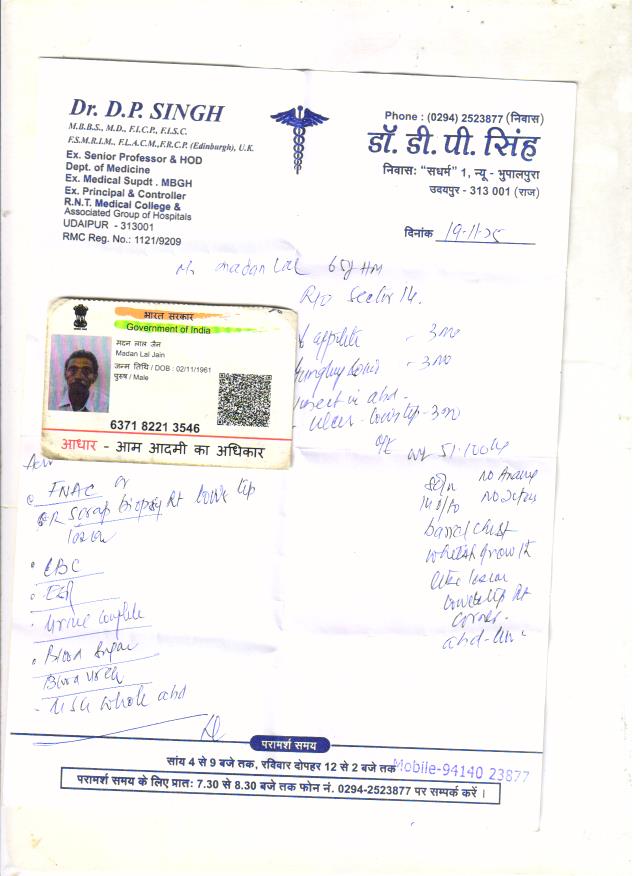 Dr. D.P. SINGH
M.B.B.S., M.D., F.I.C.P., F.I.S.C.
F.S.M.R.I.M., F.L.A.C.M., F.R.C.P. (Edinburgh), U.K.
Ex. Senior Professor & HOD
Dept. of Medicine
Ex. Medical Supdt . MBGH
Ex. Principal & Controller
R.N.T. Medical College &
Associated Group of Hospitals
UDAIPUR - 313001
RMC Reg. No.: 1121/9209
Phone : (0294) 2523877 (निवास)
डॉ. डी. पी. सिंह
निवास: "सधर्म" 1, न्यू - भुपालपुरा
उदयपुर - 313 001 (राज)
दिनांक 19-11-25
Mr madan Lal 65y HM
R/o Sector 14.
appitite - 3mo
- 3mo
in abd -
- ulcer - lower lip - 3mo
O/E
भारत सरकार
Government of India
मदन लाल जैन
Madan Lal Jain
जन्म तिथि / DOB : 02/11/1961
पुरुष / Male
6371 8221 3546
आधार - आम आदमी का अधिकार
FNAC or
scrap biopsy Rt lower lip
CBC
ESR
Urine complete
Blood Sugar
Blood Urea
- USG whole abd
No
No
barrel chest
whitish growth
like lesion
lower lip Rt
corner.
abd-
परामर्श समय
सांय 4 से 9 बजे तक, रविवार दोपहर 12 से 2 बजे तक Mobile-94140 23877
परामर्श समय के लिए प्रातः 7.30 से 8.30 बजे तक फोन नं. 0294-2523877 पर सम्पर्क करें ।